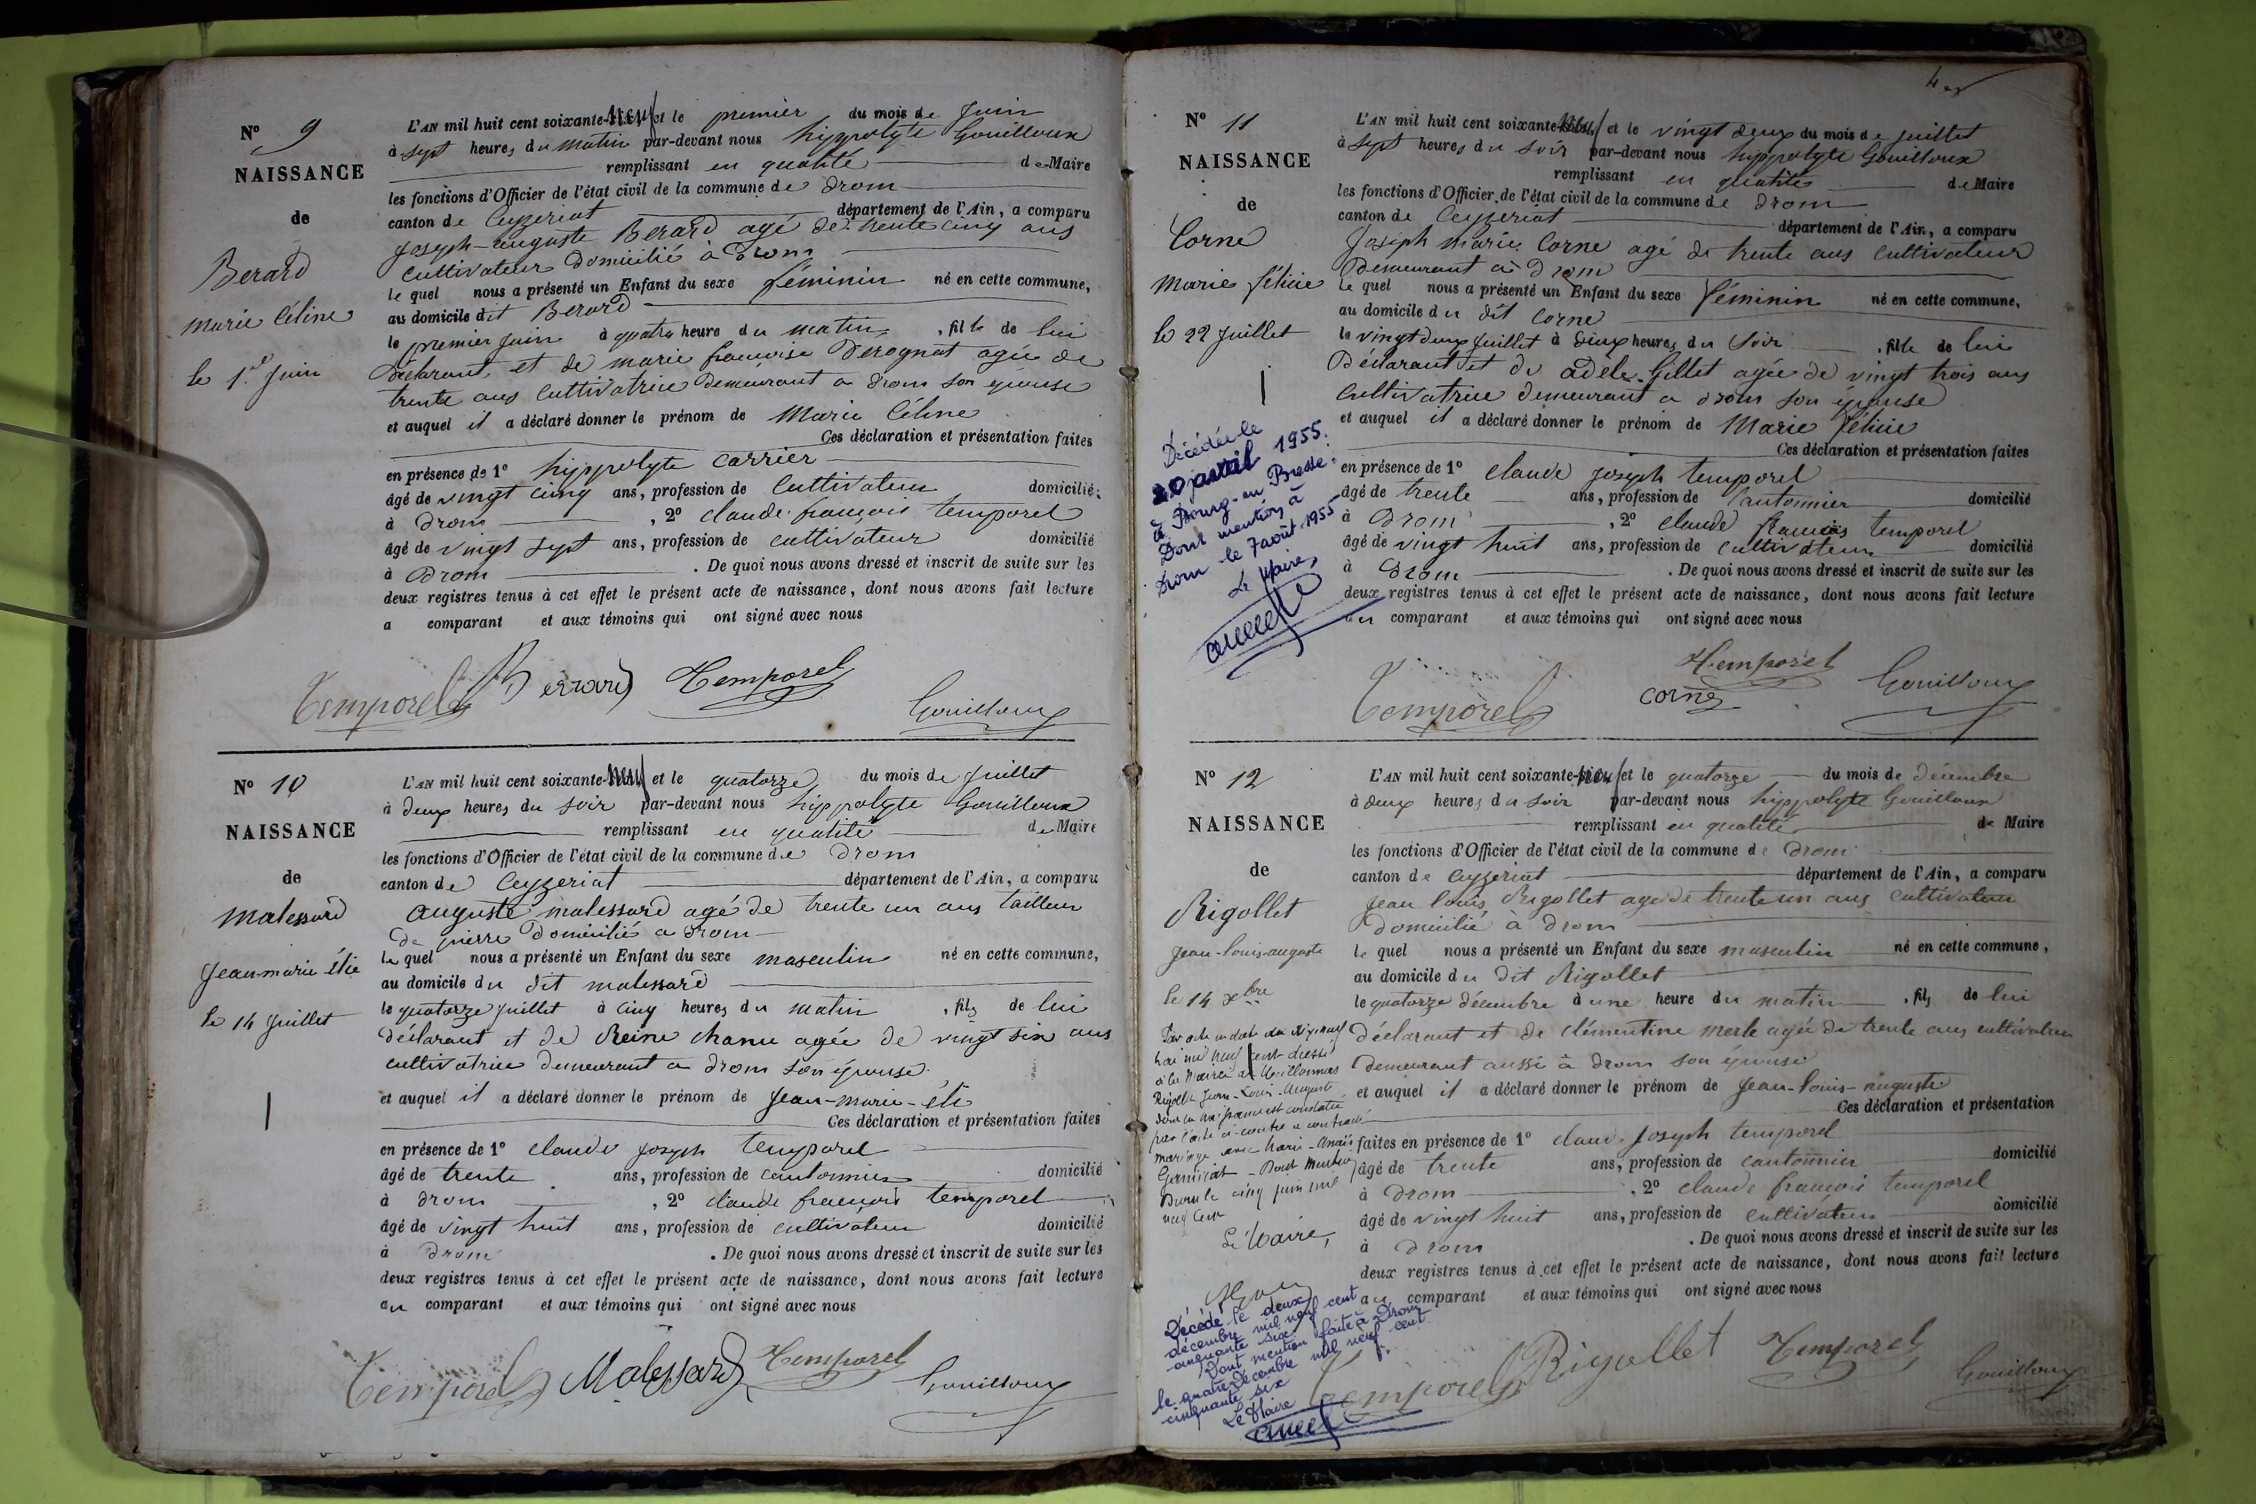 N° 9
NAISSANCE
de
Berard
Marie Céline
le 1er Juin
L'AN mil huit cent soixante-neuf et le premier du mois de Juin
à sept heures du matin par-devant nous hippolyte Gouilloux
remplissant en qualité de Maire
les fonctions d'Officier de l'état civil de la commune de Drom
canton de Ceyzeriat département de l'Ain, a comparu
Joseph-auguste Berard agé de trente cinq ans
cultivateur domicilié à Drom
le quel nous a présenté un Enfant du sexe féminin né en cette commune,
au domicile dit Berard
le premier juin à quatre heure du matin, fille de lui
déclarant et de marie françoise Dérognat agée de
trente ans cultivatrice demeurant a Drom son épouse
et auquel il a déclaré donner le prénom de Marie Céline
Ces déclaration et présentation faites
en présence de 1° hippolyte carrier
âgé de vingt cinq ans, profession de Cultivateur domicilié
à Drom, 2° claude françois temporel
âgé de vingt sept ans, profession de cultivateur domicilié
à Drom. De quoi nous avons dressé et inscrit de suite sur les
deux registres tenus à cet effet le présent acte de naissance, dont nous avons fait lecture
a comparant et aux témoins qui ont signé avec nous
Temporel Berrard Temporel
Gouilloux
N° 10
NAISSANCE
de
Malessard
Jean-marie élie
le 14 Juillet
L'AN mil huit cent soixante-neuf et le quatorze du mois de Juillet
à deux heures du soir par-devant nous hippolyte Gouilloux
remplissant en qualité de Maire
les fonctions d'Officier de l'état civil de la commune de Drom
canton de Ceyzeriat département de l'Ain, a comparu
auguste malessard agé de trente un ans tailleur
de pierre domicilié a Drom
le quel nous a présenté un Enfant du sexe masculin né en cette commune,
au domicile du dit malessard
le quatorze juillet à cinq heures du matin, fils de lui
déclarant et de Reine chanu agée de vingt six ans
cultivatrice demeurant a Drom son épouse
et auquel il a déclaré donner le prénom de Jean-marie-élie
Ces déclaration et présentation faites
en présence de 1° claude joseph temporel
âgé de trente ans, profession de cantonnier domicilié
à Drom, 2° claude françois temporel
âgé de vingt huit ans, profession de cultivateur domicilié
à Drom. De quoi nous avons dressé et inscrit de suite sur les
deux registres tenus à cet effet le présent acte de naissance, dont nous avons fait lecture
au comparant et aux témoins qui ont signé avec nous
Temporel Malessard Temporel
Gouilloux
4
N° 11
NAISSANCE
de
Corne
Marie félicie
le 22 Juillet
Décédée le
20 avril 1955
à Bourg-en-Bresse.
Dont mention à
Drom le 7 août 1955
Le Maire,
L'AN mil huit cent soixante-neuf et le vingt deux du mois de juillet
à sept heures du soir par-devant nous hippolyte Gouilloux
remplissant en qualité de Maire
les fonctions d'Officier de l'état civil de la commune de Drom
canton de Ceyzeriat département de l'Ain, a comparu
Joseph marie Corne agé de trente ans cultivateur
Demeurant à Drom
le quel nous a présenté un Enfant du sexe féminin né en cette commune,
au domicile du dit corne
le vingt deux juillet à deux heures du soir, fille de lui
Déclarant et de adele Gillet agée de vingt trois ans
cultivatrice demeurant a Drom son épouse
et auquel il a déclaré donner le prénom de Marie félicie
Ces déclaration et présentation faites
en présence de 1° claude joseph temporel
âgé de trente ans, profession de Cantonnier domicilié
à Drom, 2° claude francois temporel
âgé de vingt huit ans, profession de cultivateur domicilié
à Drom. De quoi nous avons dressé et inscrit de suite sur les
deux registres tenus à cet effet le présent acte de naissance, dont nous avons fait lecture
au comparant et aux témoins qui ont signé avec nous
Temporel Corne Temporel Gouilloux
N° 12
NAISSANCE
de
Rigollet
Jean-louis-auguste
le 14 xbre
Par acte en date du dix neuf
mai mil neuf cent dressé
à la Mairie de
Rigollet Jean-Louis-Auguste
dont la naissance est constatée
par l'acte ci-contre a contracté
mariage avec Marie-Anaïs
Dont Mention
Drom le cinq juin mil
neuf cent
Le Maire,
Décédé le deux
décembre mil neuf cent
cinquante six
Dont mention faite à Drom
le quatre Decembre mil neuf cent
cinquante six
Le Maire
L'AN mil huit cent soixante-neuf et le quatorze du mois de décembre
à deux heures du soir par-devant nous hippolyte Gouilloux
remplissant en qualité de Maire
les fonctions d'Officier de l'état civil de la commune de Drom
canton de Ceyzeriat département de l'Ain, a comparu
Jean louis Rigollet age de trente un ans cultivateur
domicilié à Drom
le quel nous a présenté un Enfant du sexe masculin né en cette commune,
au domicile du dit Rigollet
le quatorze décembre à une heure du matin, fils de lui
déclarant et de clémentine merle agée de trente ans cultivatrice
demeurant aussi à Drom son épouse
et auquel il a déclaré donner le prénom de Jean-louis-auguste
Ces déclaration et présentation
faites en présence de 1° claude Joseph temporel
âgé de trente ans, profession de cantonnier domicilié
à Drom, 2° claude françois temporel
âgé de vingt huit ans, profession de cultivateur domicilié
à Drom. De quoi nous avons dressé et inscrit de suite sur les
deux registres tenus à cet effet le présent acte de naissance, dont nous avons fait lecture
au comparant et aux témoins qui ont signé avec nous
Temporel Rigollet Temporel
Gouilloux